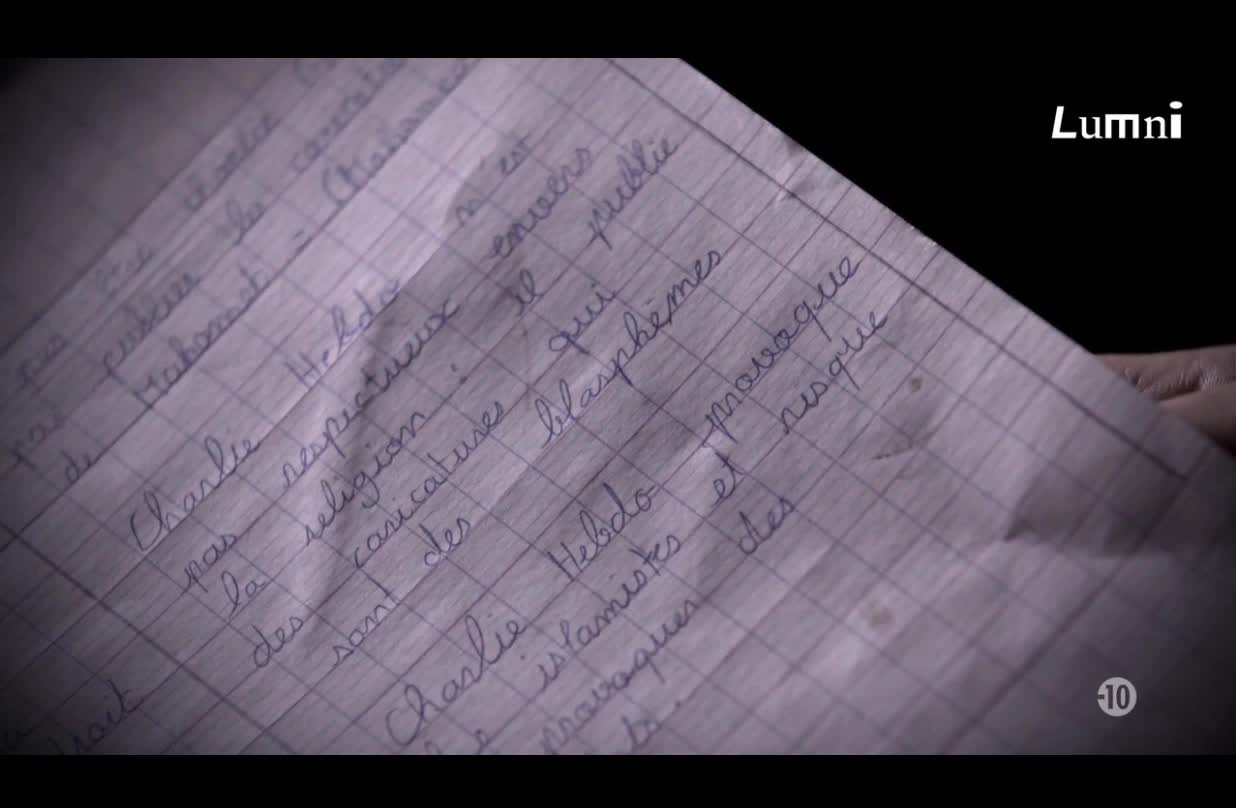 Lumni
publier les
de Mahomet.
Charlie Hebdo n'est
pas respectueux envers
la religion : il publie
des caricatures qui
sont des blasphèmes
Charlie Hebdo provoque
islamistes et risque
provoquer des
-10